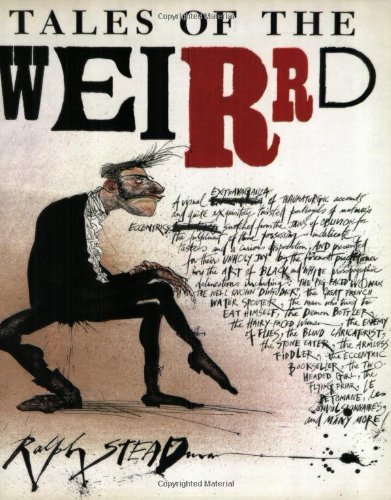 TALES OF THE
WEIRRD
EXTRAVAGANZA
A visual of THAUMATURGIC accounts
and quite exquisitely twisted portrayals of
ECCENTRICS snatched from the JAWS of OBLIVION for
the of those possessing indelicate
tastes and a curious disposition, AND presented
for their UNHOLY JOY by the foremost practitioner
in the ART of BLACK and white
delineations including. THE PIG FACED WOMAN,
THE WELL KNOWN the GREAT FRENCH
WATER SPOUTER, the man who tried to
EAT HIMSELF, the DEMON BOTTLER,
the HAIRY FACED woman the ENEMY
of FLIES, the BLIND CARICATURIST,
the STONE EATER, the ARMLESS
FIDDLER, the ECCENTRIC
BOOKSELLER, the TWO
HEADED GIRL, the
FLYING FRIAR, LE
PETOMANE, Les
CONVULSIONNAIRES
and MANY MORE!
Ralph STEADman
Copyrighted Material
Copyrighted Material